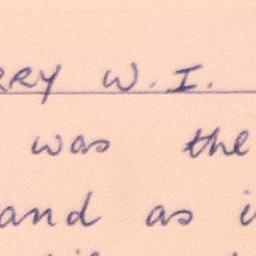 RRY W.I.
was the
and as